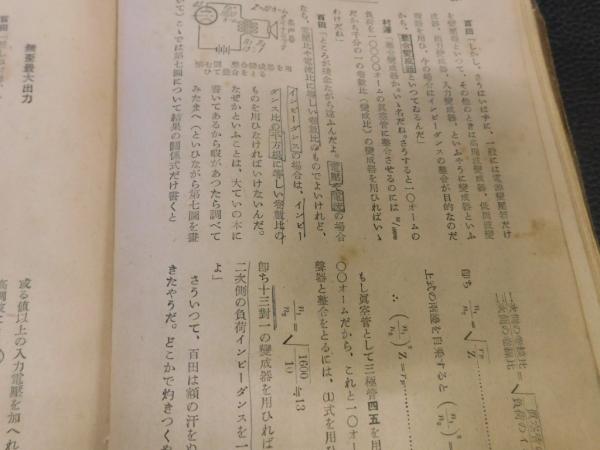 百田「しかし、さうはいはずに、一般には電源變壓器だけ
を變壓器といつて、その他のときは高周波變成器、低周波變
成器、出力變成器、入力變成器、といふやうに變成器といふ
言葉を用ひ、今の場合はインピーダンスの整合が目的なのだ
から、整合變成器といつてゐるんだ」
村澤「整合變成器か。いゝ名だね。さうすると一〇オームの
負荷を一〇〇〇〇オームの眞空管に整合させるのには 1/1000
だから千分の一の卷數比（變成比）の變成器を用ひればいゝ
わけだね」
百田「ところが殘念ながら違ふんだよ。電壓や電流の場合
なら、電壓比や電流比に等しい卷數比のものでよいけれど、
インピーダンスの場合は、インピー
ダンス比の平方根に等しい卷數比の
ものを用ひなければいけないんだ。
なぜかといふことは、大ていの本に
書いてあるから暇があつたら調べて
みたまへ（といひながら第七圖を畫
いて、こゝでは第七圖について結果の關係式だけ書くと
第七圖 整合變成器を用
ひて整合をとる
無歪最大出力
二次側の卷線比
即ち n₁/n₂ = √
上式の兩邊を自乘すると (n₁/n₂)² =
∴ (n₁/n₂)² Z = r
もし眞空管として三極管四五を用
〇〇オームだから、これと一〇オー
聲器と整合をとるには、(1)式を用ひ
n₁/n₂ = √1600/10 ≒ 13
即ち十三對一の變成器を用ひれば
二次側の負荷インピーダンスを一
よ」
さういつて、百田は額の汗をぬ
きたやうだ。どこかで灼きつくや
或る値以上の入力電壓を加へれ